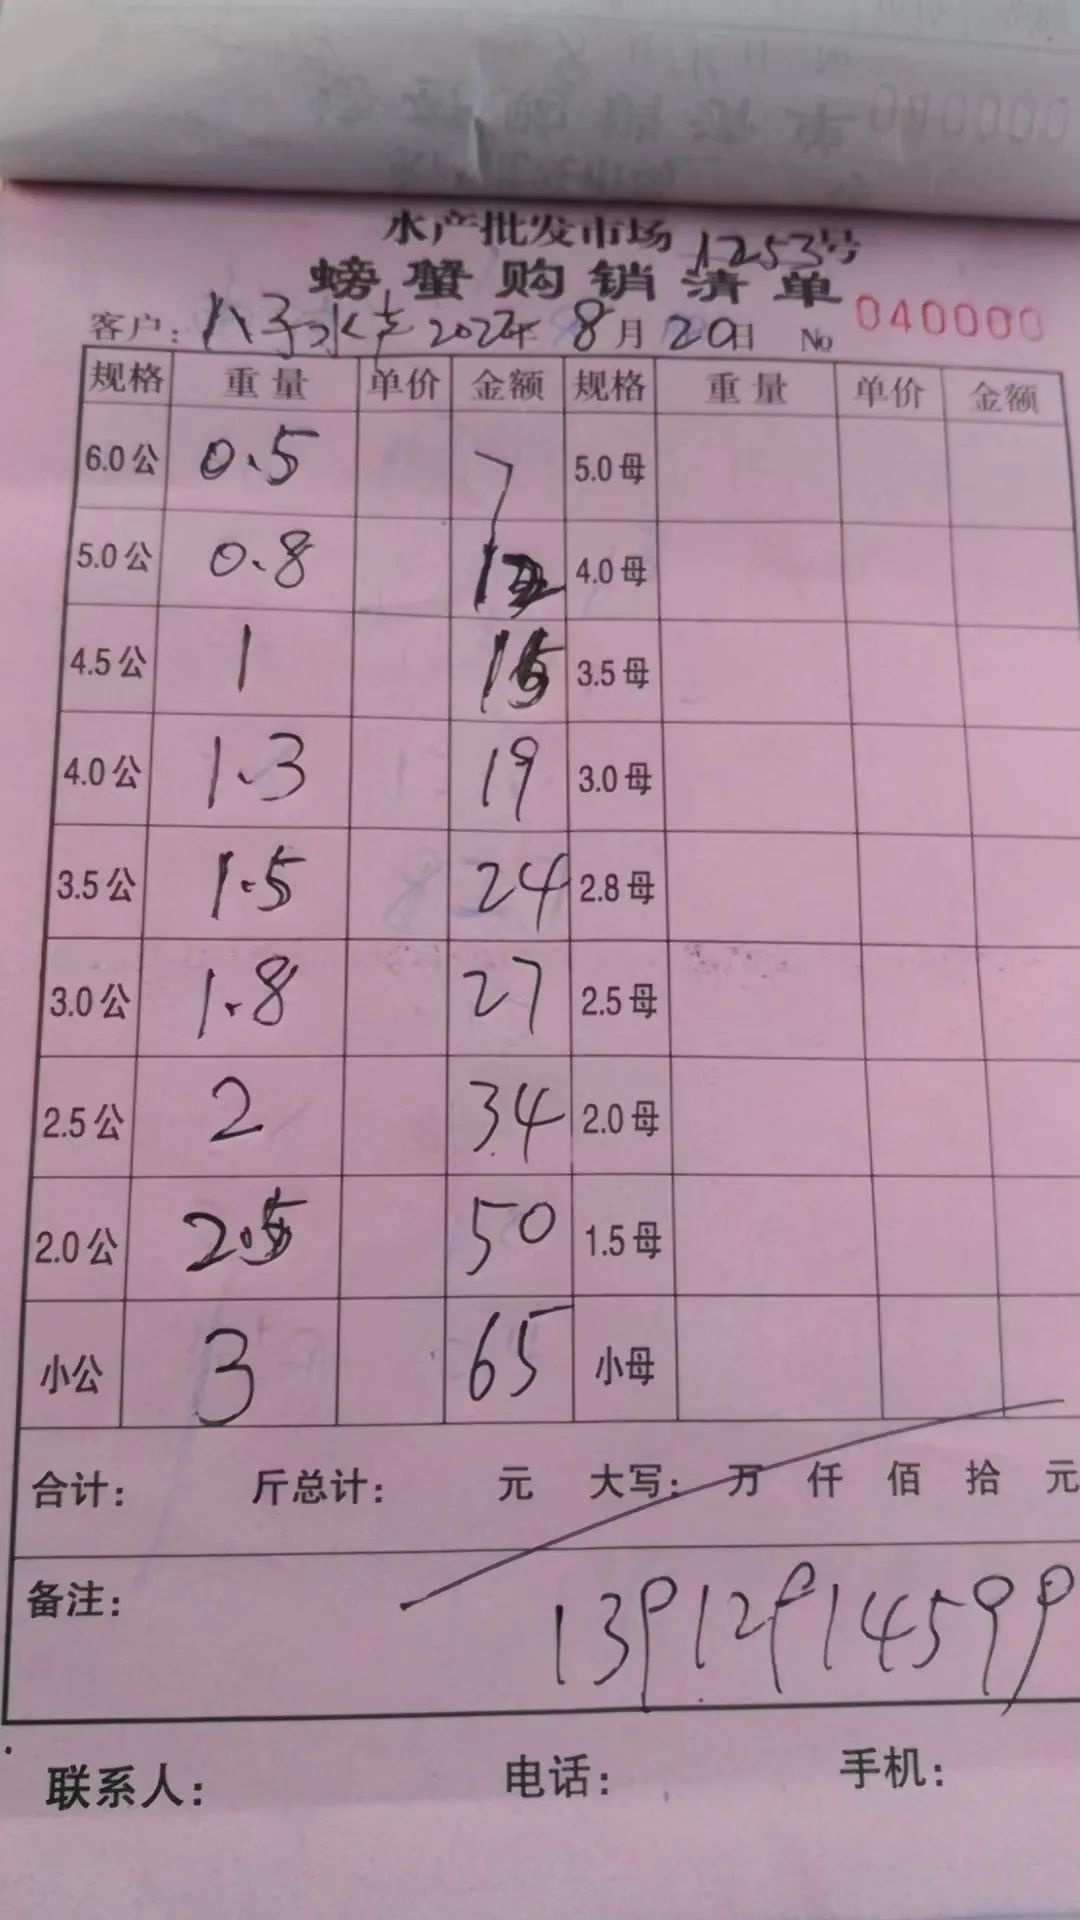 水产批发市场 1253号
螃蟹购销清单
客户：八子水产 2022年 8月 20日 No 040000
规格 重量 单价 金额 规格 重量 单价 金额
6.0公 0.5 7 5.0母
5.0公 0.8 12 4.0母
4.5公 1 15 3.5母
4.0公 1.3 19 3.0母
3.5公 1.5 24 2.8母
3.0公 1.8 27 2.5母
2.5公 2 34 2.0母
2.0公 2.5 50 1.5母
小公 3 65 小母
合计： 斤总计： 元 大写： 万 仟 佰 拾 元
备注： 13912914599
联系人： 电话： 手机：